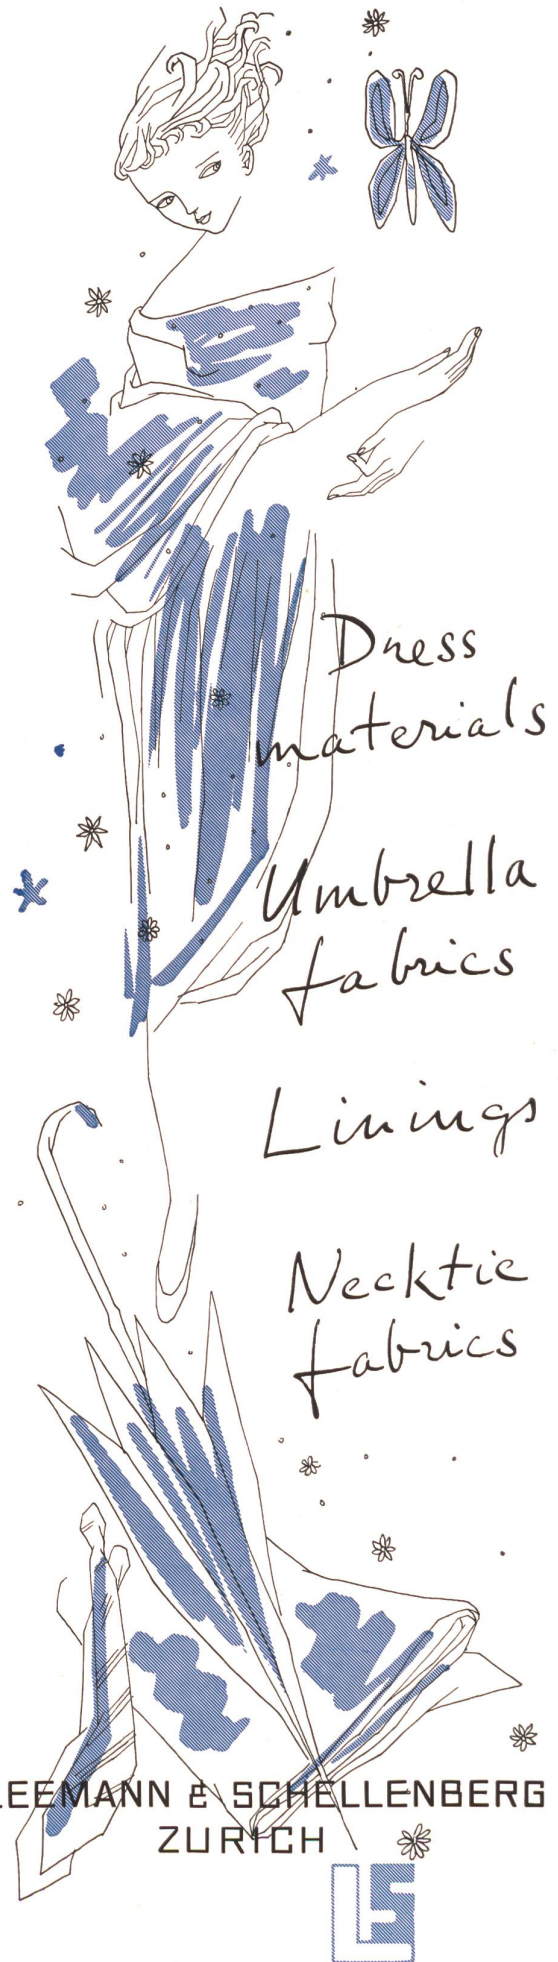 Dress
materials
Umbrella
fabrics
Linings
Necktie
fabrics
LEEMANN & SCHELLENBERG
ZURICH
LS